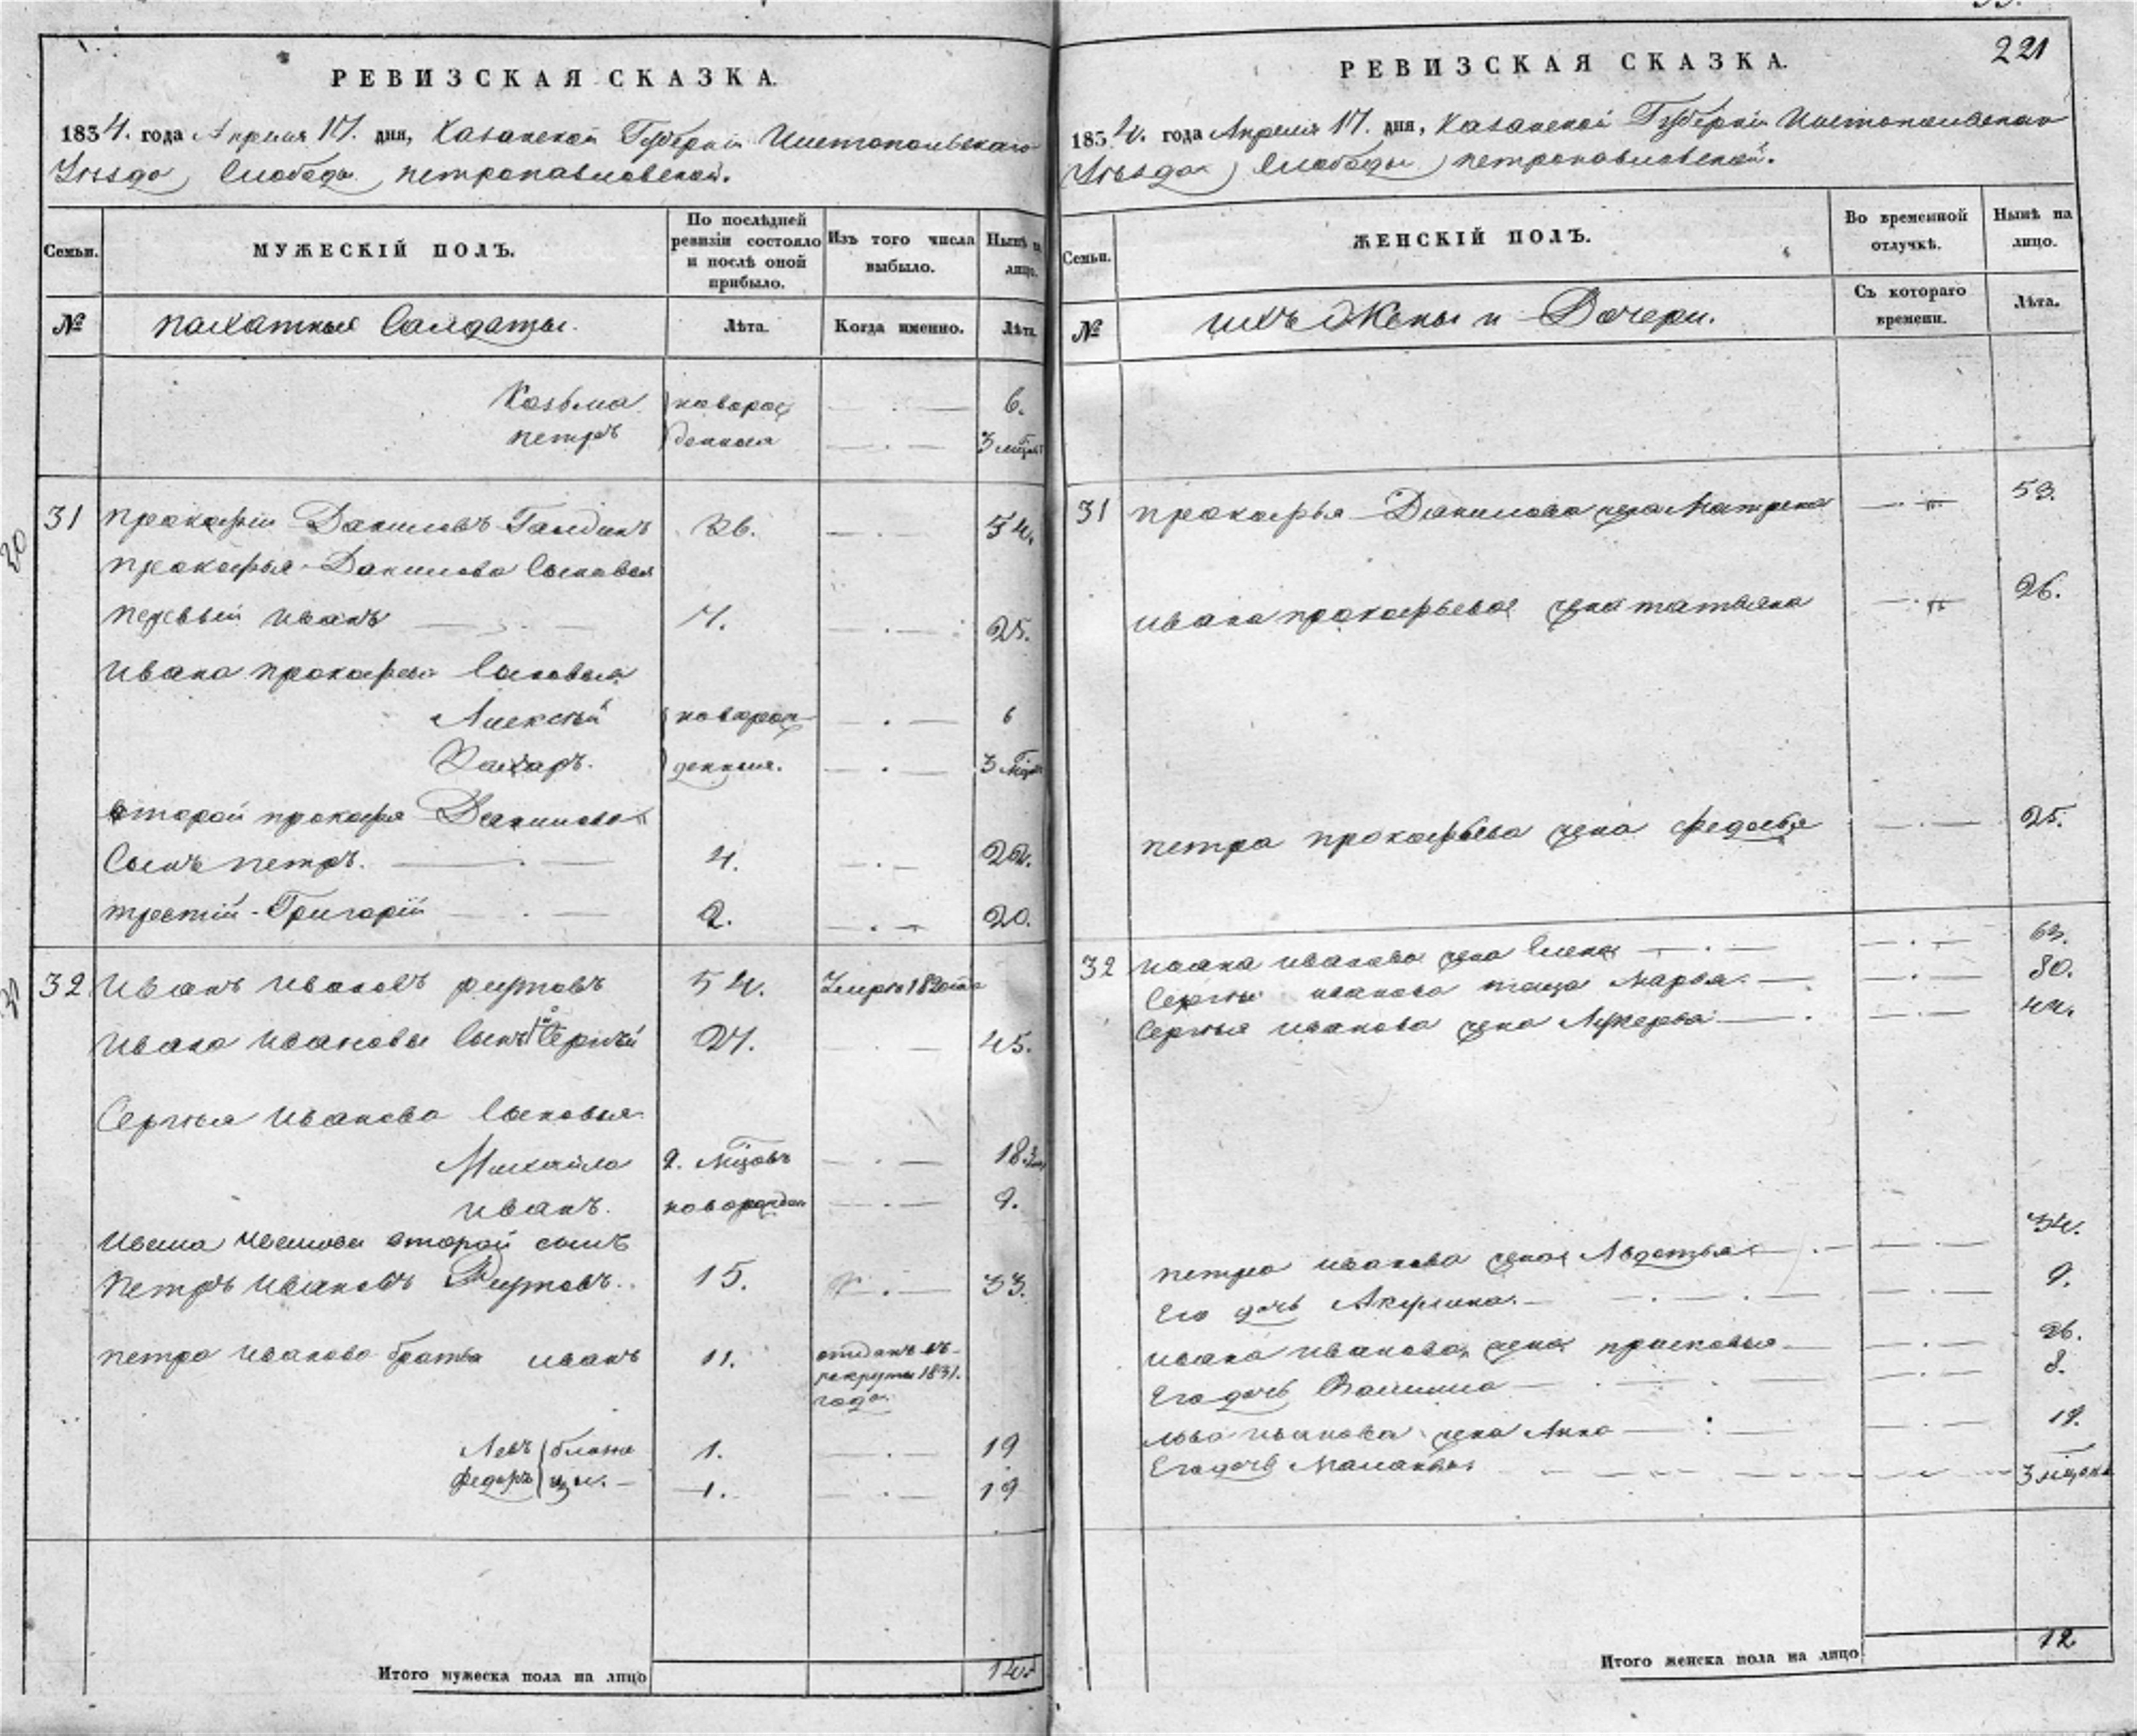 РЕВИЗСКАЯ СКАЗКА.
1834. года Апреля 17. дня, Казанской Губерніи Чистопольскаго
Уѣзда, Слободы петропавловской.
Семьи.
МУЖЕСКІЙ ПОЛЪ.
По послѣдней ревизіи состояло и послѣ оной прибыло.
Изъ того числа выбыло.
Нынѣ на лицо.
№
пахатныя Солдаты.
Лѣта.
Когда именно.
Лѣта.
Козьма новорож 6.
петръ денныя 3 мѣся
31 прокофій Даниловъ Галдинъ 36. 54.
прокофья Данилова Сыновья
первый иванъ 7. 25.
ивана прокофьева Сыновья
Алексѣй новорож 6
Захаръ. денныя. 3 мѣся
второй прокофья Данилова
Сынъ петръ. 4. 22.
третій Григорій 2. 20.
30
32 Иванъ ивановъ фирсовъ 54. Умре 1820 года
ивана ивановы Сынъ Сергѣй 27. 45.
Сергѣя иванова Сыновья
Михайло 9. мѣсцовъ 18.
иванъ. новорожден 9.
ивана иванова второй сынъ
петръ ивановъ 15. 33.
петра иванова братья иванъ 11. отданъ въ
рекруты 1831.
года.
Левъ близне 1. 19
федоръ цы. 1. 19
31
Итого мужеска пола на лицо 14.
РЕВИЗСКАЯ СКАЗКА.
221
1834. года Апреля 17. дня, Казанской Губерніи Чистопольскаго
Уѣзда, Слободы петропавловской.
Семьи.
ЖЕНСКІЙ ПОЛЪ.
Во временной отлучкѣ.
Нынѣ на лицо.
№
ихъ Жены и Дочери.
Съ котораго времени.
Лѣта.
31 прокофья Данилова жена Матрена 53.
ивана прокофьева жена татьяна 26.
петра прокофьева жена федосья 25.
32 ивана иванова жена Елена 63.
Сергѣя иванова теща Марья. 80.
Сергѣя иванова жена Лукерья 44.
петра иванова жена Авдотья 34.
Его дочь Акулина. 9.
ивана иванова жена прасковья 26.
Его дочь 8.
Льва иванова жена Анна 19.
Его дочь Маланья 3 мѣсяца
Итого женска пола на лицо 12